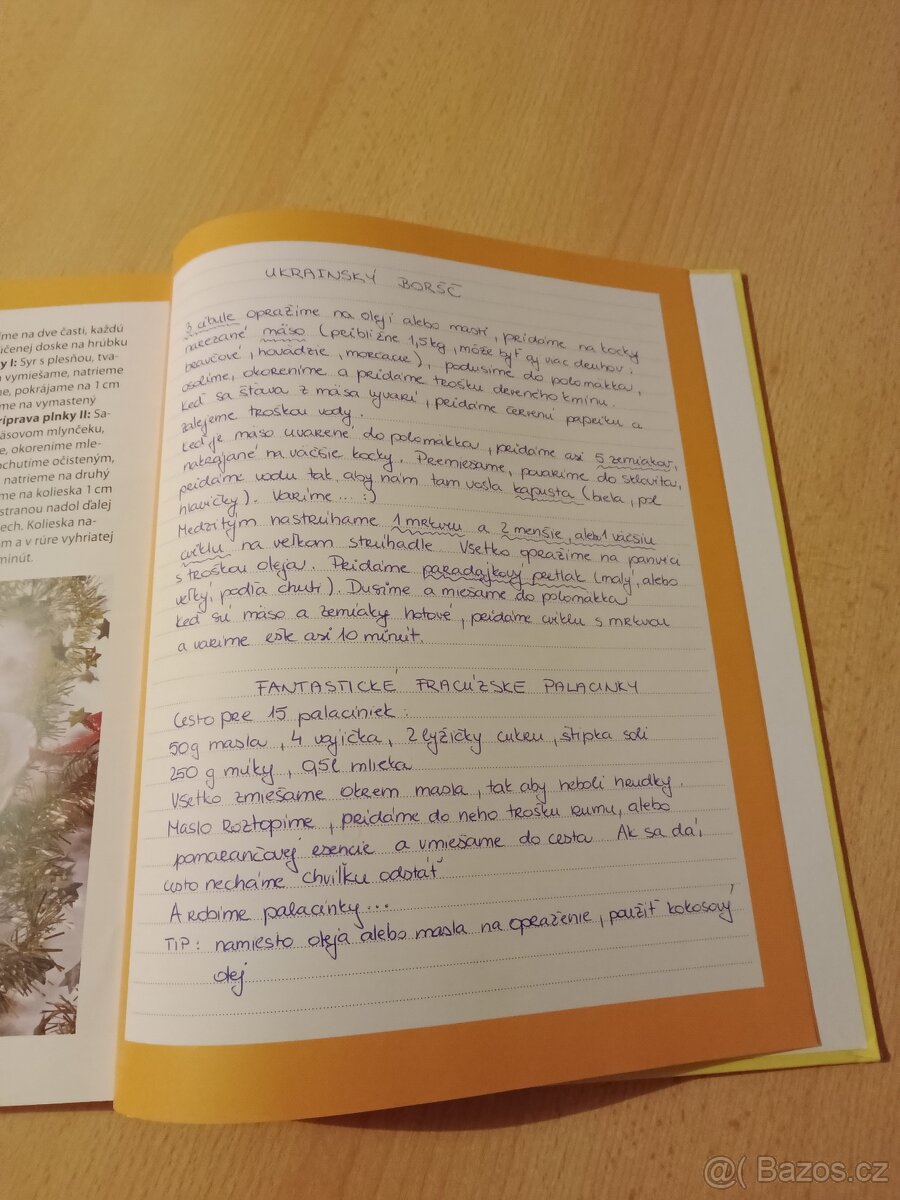 íme na dve časti, každú
účenej doske na hrúbku
y I: Syr s plesňou, tva-
vymiešame, natrieme
me, pokrájame na 1 cm
me na vymastený
ríprava plnky II: Sa-
ásovom mlynčeku,
e, okoreníme mle-
ochutíme očisteným,
natrieme na druhý
me na kolieska 1 cm
stranou nadol ďalej
ech. Kolieska na-
m a v rúre vyhriatej
minút.
UKRAINSKÝ BORŠČ
3 cibule opražíme na oleji alebo masti, pridáme na kocky
narezané mäso (približne 1,5kg, môže byť aj viac druhov:
bravčové, hovädzie, morčacie), podusíme do polomäkka,
osolíme, okoreníme a pridáme trošku dereného kmínu.
Keď sa šťava z mäsa vyvarí, pridáme červenú papriku a
zalejeme troškou vody.
Keď je mäso uvarené do polomäkka, pridáme asi 5 zemiakov,
nakrájané na väčšie kocky. Premiešame, povaríme do sklovita,
pridáme vodu tak, aby nám tam vošla kapusta (biela, pol
hlavičky). Varíme... :)
Medzitým nastrúhame 1 mrkvu a 2 menšie, alebo 1 väčšiu
cviklu na veľkom strúhadle. Všetko opražíme na panvici
s troškou oleja. Pridáme paradajkový pretlak (malý, alebo
veľký, podľa chuti). Dusíme a miešame do polomäkka
Keď sú mäso a zemiaky hotové, pridáme cviklu s mrkvou
a varíme ešte asi 10 minút.
FANTASTICKÉ FRACÚZSKE PALACINKY
Cesto pre 15 palaciniek:
50g masla, 4 vajíčka, 2 lyžičky cukru, štipka soli
250 g múky, 0,5l mlieka
Všetko zmiešame okrem masla, tak aby neboli hrudky.
Maslo roztopíme, pridáme do neho trošku rumu, alebo
pomarančovej esencie a vmiešame do cesta. Ak sa dá,
cesto necháme chvíľku odstáť
A robíme palacinky...
TIP: namiesto oleja alebo masla na opraženie, použiť kokosový
olej
@( Bazos.cz